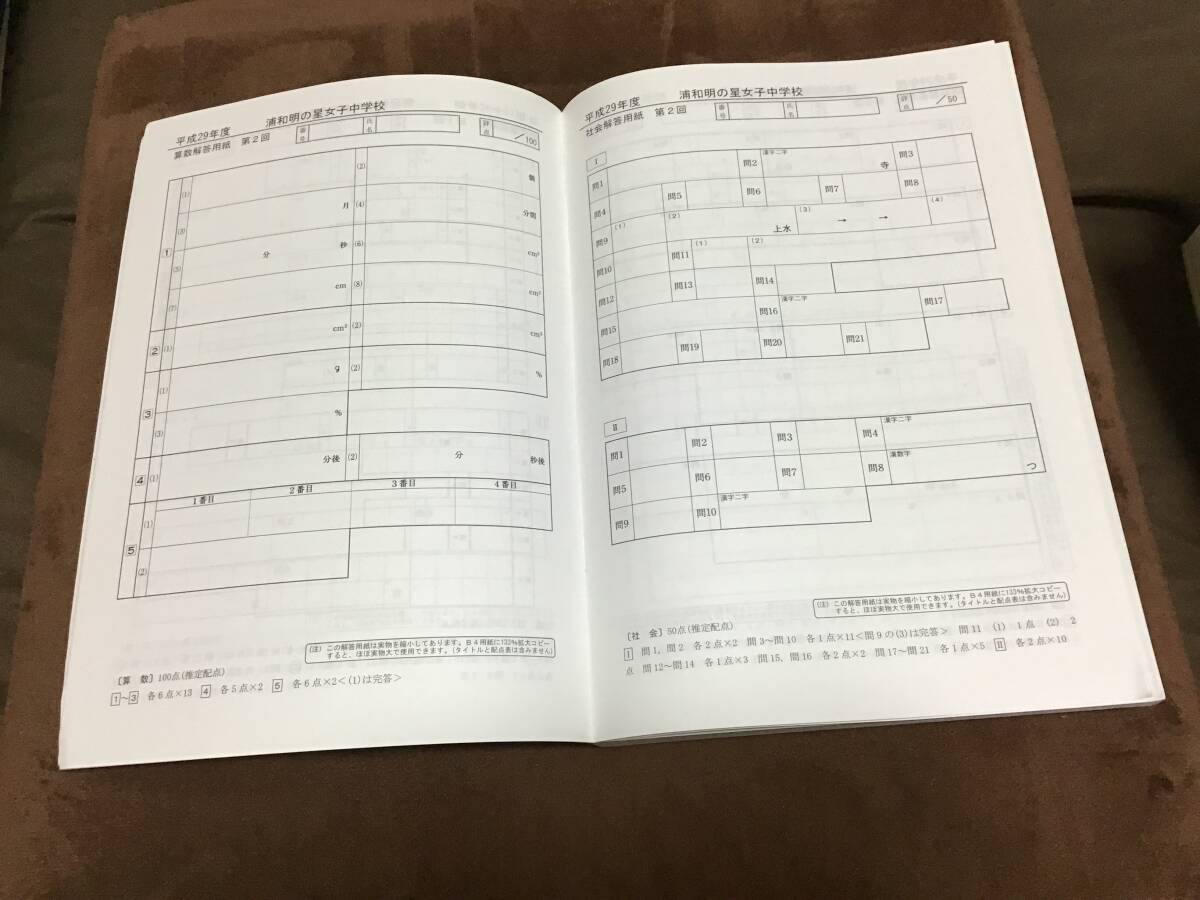 平成29年度　浦和明の星女子中学校
算数解答用紙　第2回　番号　氏名　評点　／100
1　(1)　(2)　個
(3)　月　(4)　分間
(5)　分　秒　(6)　cm²
(7)　cm　(8)　cm²
2　(1)　cm²　(2)　cm²
3　(1)　g　(2)　%
(3)　%
4　(1)　分後　(2)　分　秒後
5　(1)　1番目　2番目　3番目　4番目
(2)
(注) この解答用紙は実物を縮小してあります。B4用紙に133%拡大コピー
すると、ほぼ実物大で使用できます。(タイトルと配点表は含みません)
〔算　数〕100点(推定配点)
1～3　各6点×13　4　各5点×2　5　各6点×2＜(1)は完答＞
平成29年度　浦和明の星女子中学校
社会解答用紙　第2回　番号　氏名　評点　／50
I
問1　問2　漢字二字　寺　問3
問4　問5　問6　問7　問8
問9　(1)　(2)　上水　(3)　→　→　(4)
問10　問11　(1)　(2)
問12　問13　問14
問15　問16　漢字二字　問17
問18　問19　問20　問21
II
問1　問2　問3　問4　漢字二字
問5　問6　問7　問8　漢数字　つ
問9　問10　漢字二字
(注) この解答用紙は実物を縮小してあります。B4用紙に133%拡大コピー
すると、ほぼ実物大で使用できます。(タイトルと配点表は含みません)
〔社　会〕50点(推定配点)
I　問1，問2　各2点×2　問3～問10　各1点×11＜問9の(3)は完答＞　問11　(1)　1点　(2)　2
点　問12～問14　各1点×3　問15，問16　各2点×2　問17～問21　各1点×5　II　各2点×10